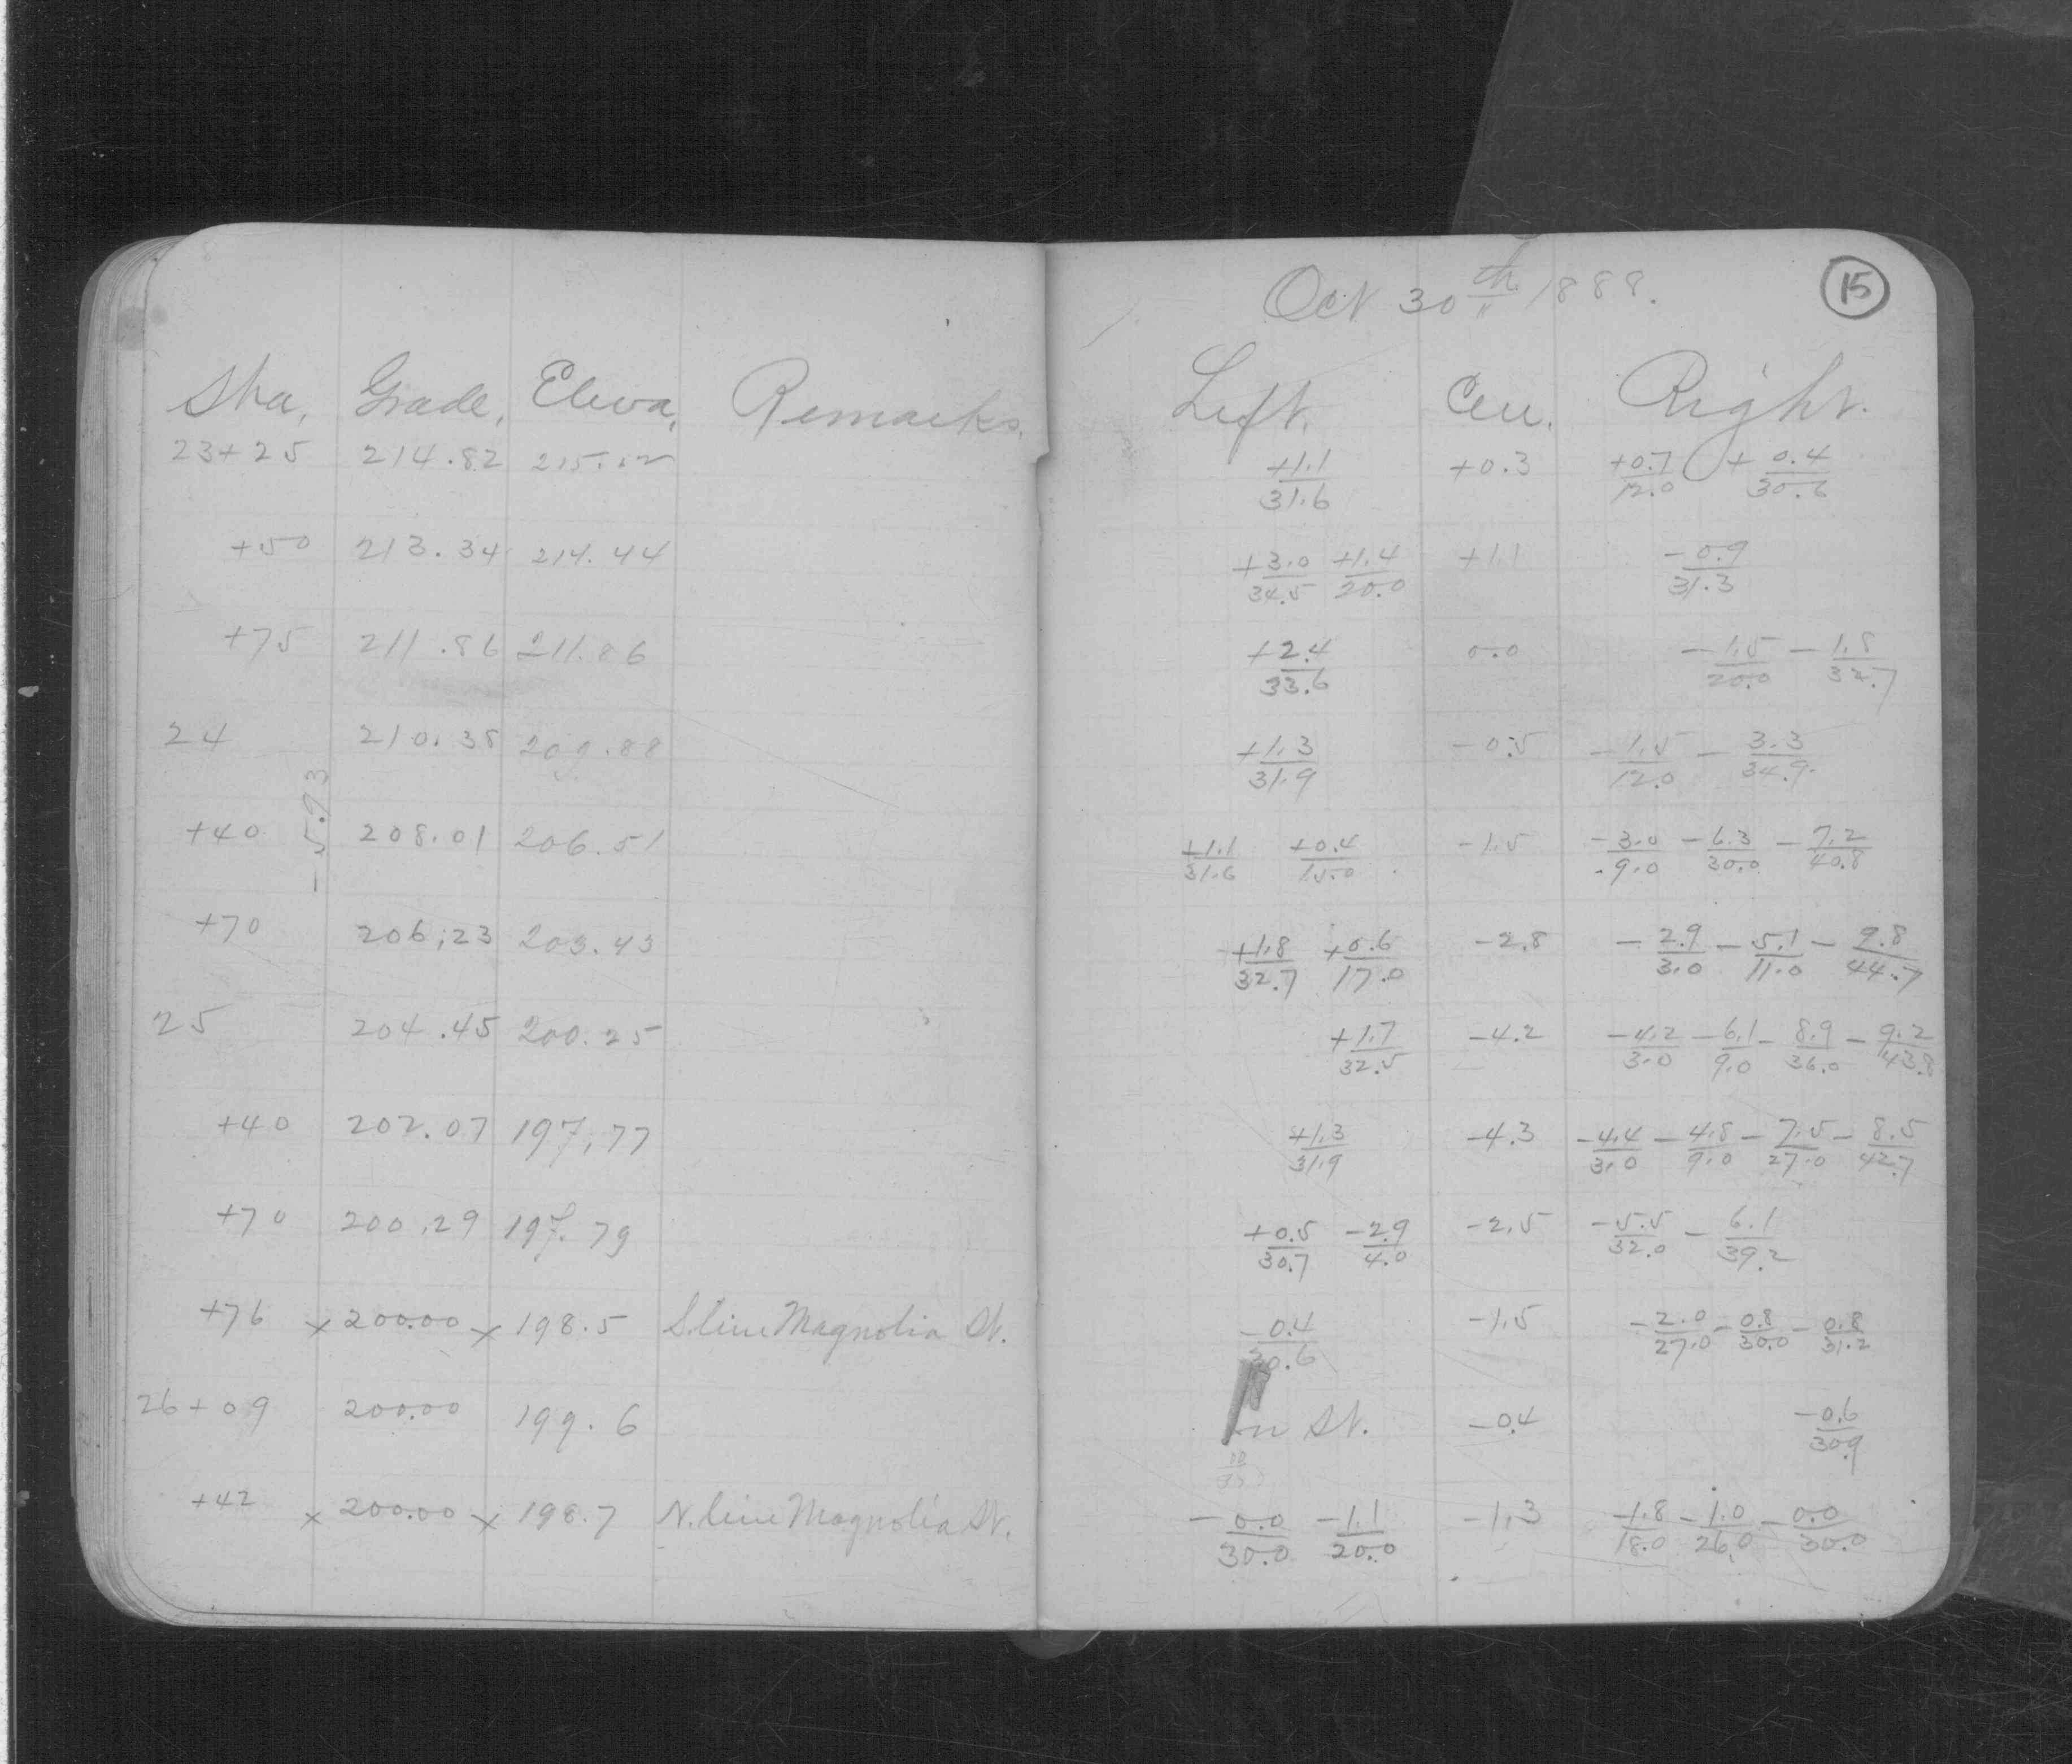 Oct 30th 1888. 15
Sta, Grade, Eleva, Remarks. Left. Cen. Right.
23+25 214.82 215.12 +1.1/31.6 +0.3 +0.7/12.0 +0.4/30.6
+50 213.34 214.44 +3.0/34.5 +1.4/20.0 +1.1 -0.9/31.3
+75 211.86 211.86 +2.4/33.6 0.0 -1.5/20.0 -1.8/32.7
24 210.38 209.88 +1.3/31.9 -0.5 -1.5/12.0 -3.3/34.9
-5.93
+40 208.01 206.51 +1.1/31.6 +0.4/15.0 -1.5 -3.0/9.0 -6.3/30.0 -7.2/40.8
+70 206.23 203.43 +1.8/32.7 +0.6/17.0 -2.8 -2.9/3.0 -5.1/11.0 -9.8/44.7
25 204.45 200.25 +1.7/32.5 -4.2 -4.2/3.0 -6.1/9.0 -8.9/36.0 -9.2/43.8
+40 202.07 197.77 +1.3/31.9 -4.3 -4.4/3.0 -4.8/9.0 -7.5/27.0 -8.5/42.7
+70 200.29 197.79 +0.5/30.7 -2.9/4.0 -2.5 -5.5/32.0 -6.1/39.2
+76 x 200.00 x 198.5 S. line Magnolia St. -0.4/30.6 -1.5 -2.0/27.0 -0.8/30.0 -0.8/31.2
26+09 200.00 199.6 In St. -0.4 -0.6/30.9
+42 x 200.00 x 198.7 N. line Magnolia St. -0.0/30.0 -1.1/20.0 -1.3 -1.8/18.0 -1.0/26.0 -0.0/30.0